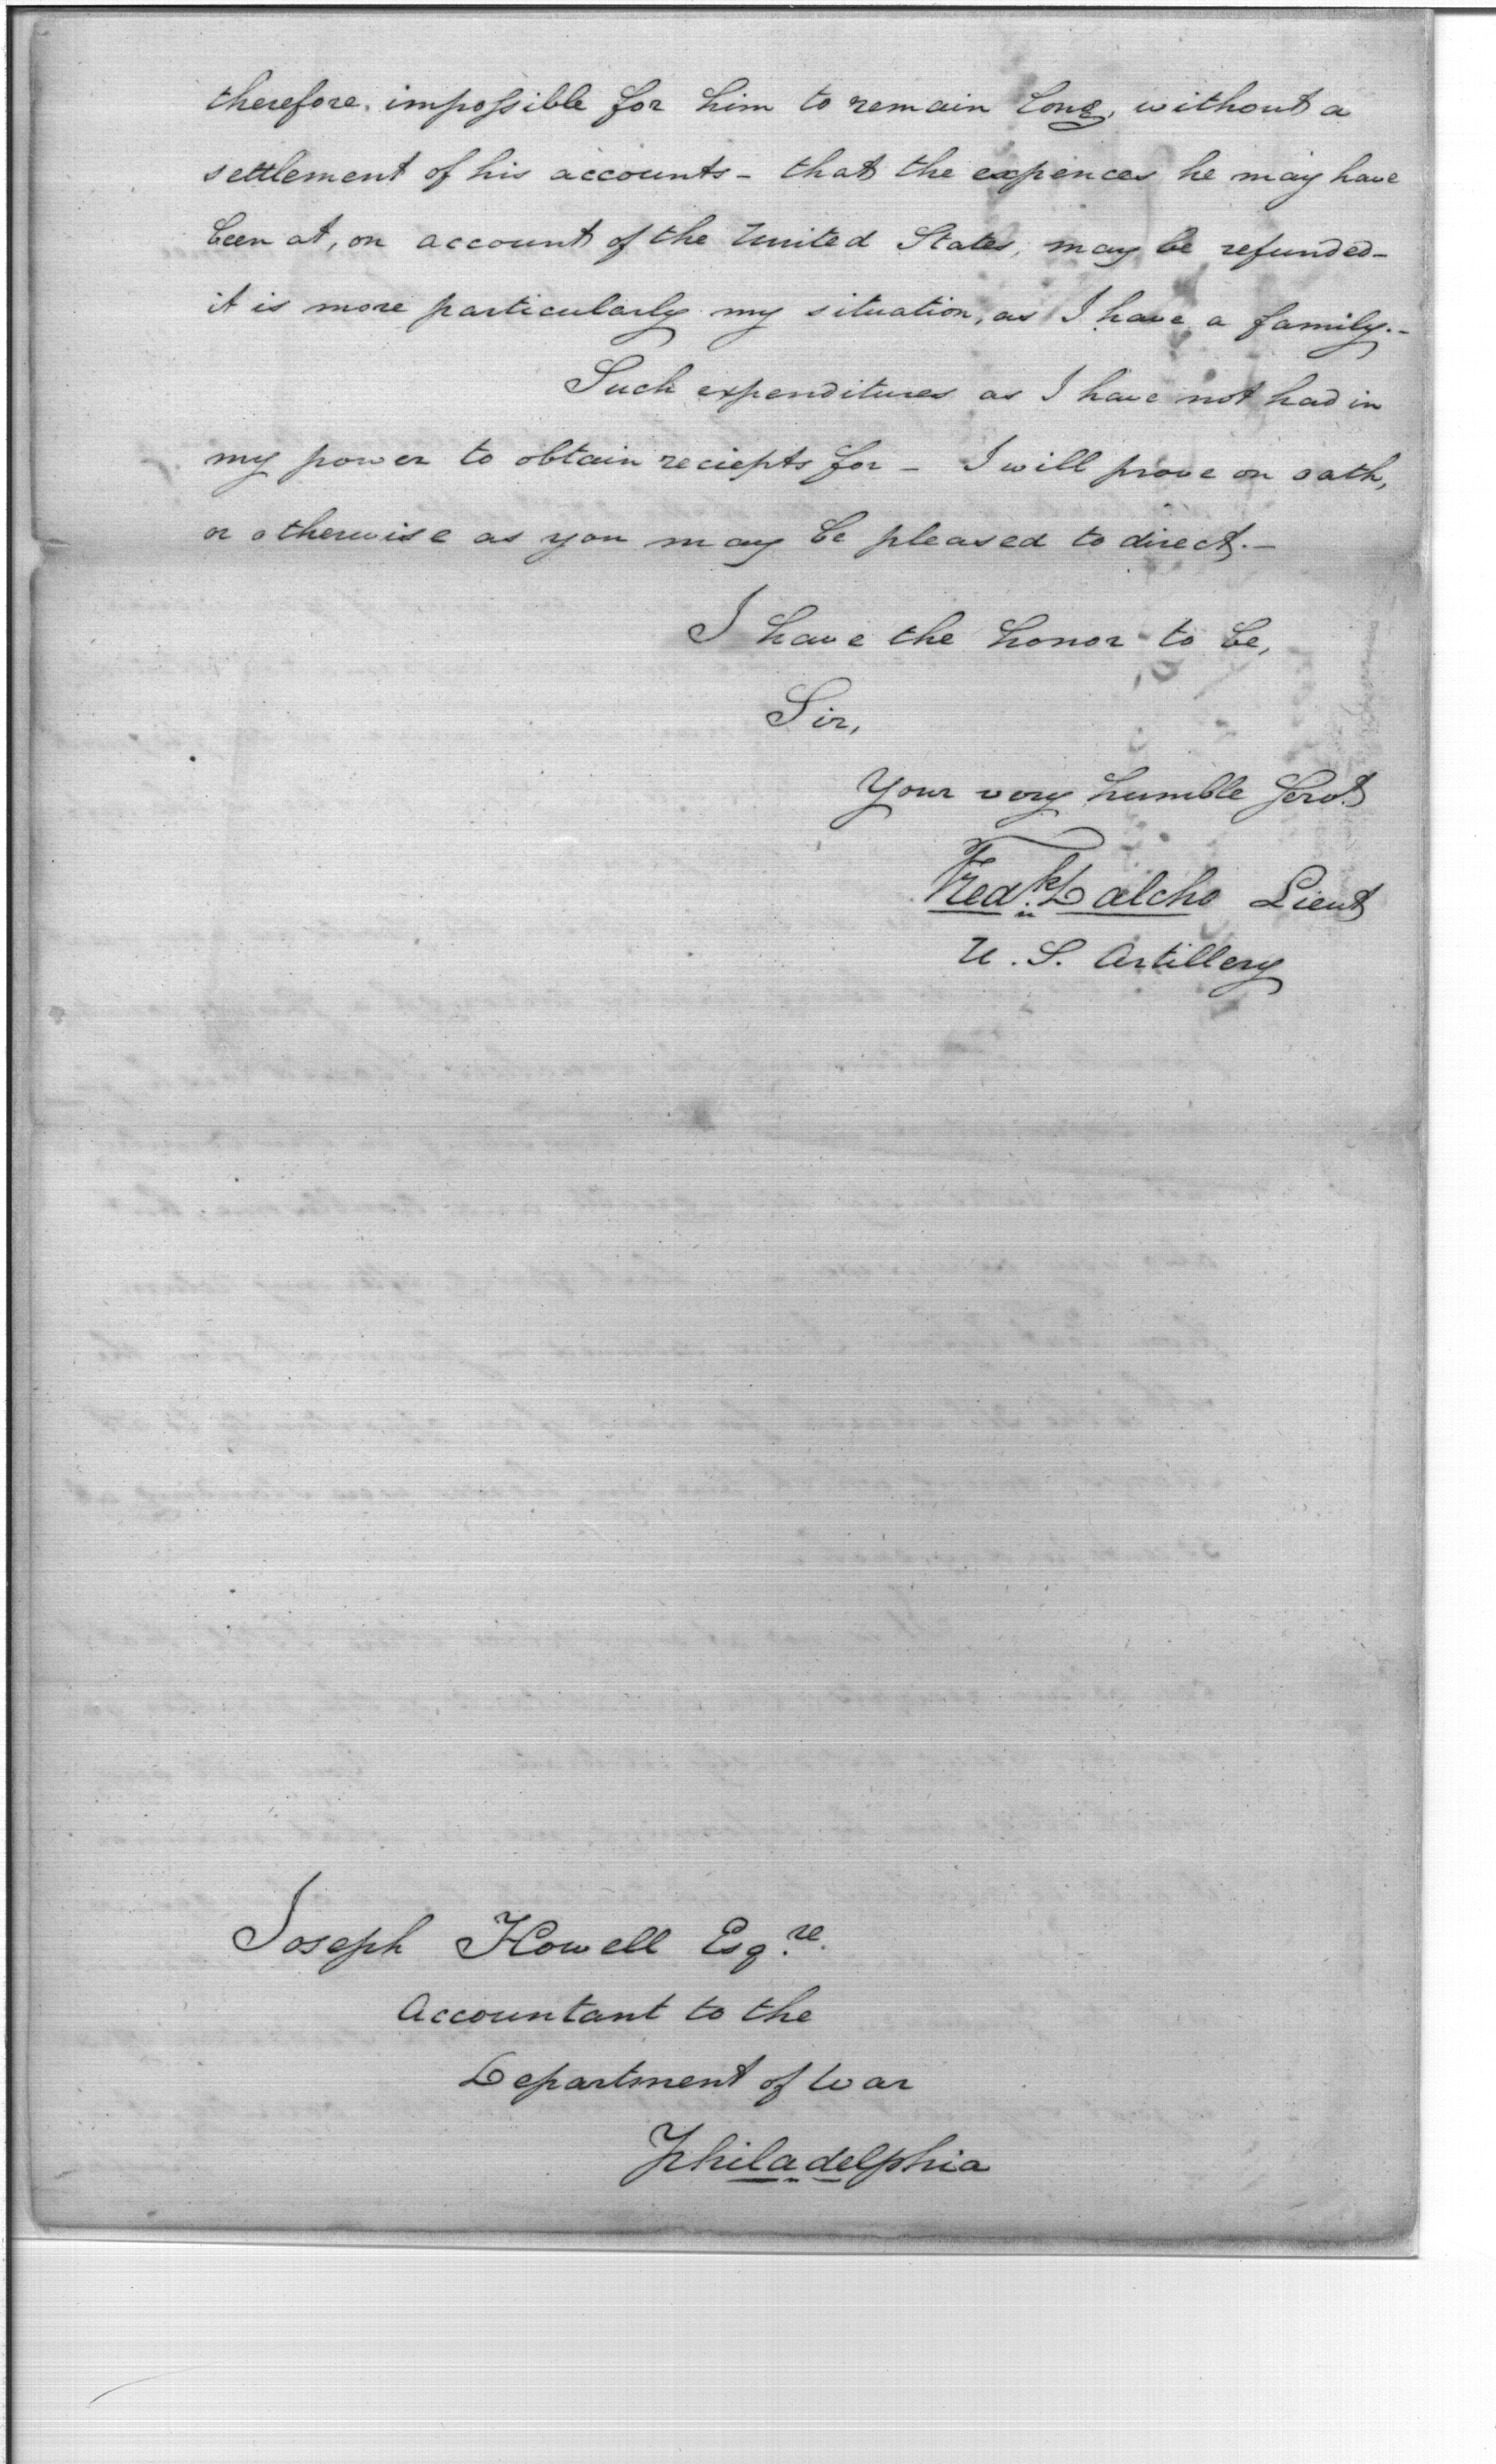 therefore, impossible for him to remain long, without a
settlement of his accounts - that the expences he may have
been at, on account of the United States, may be refunded -
it is more particularly my situation, as I have a family. -
Such expenditures as I have not had in
my power to obtain reciepts for - I will prove on oath,
or otherwise as you may be pleased to direct. -
I have the honor to be,
Sir,
Your very humble Servt
Fredk. Dalcho Lieut
U. S. Artillery
Joseph Howell Esqre.
Accountant to the
Department of War
Philadelphia